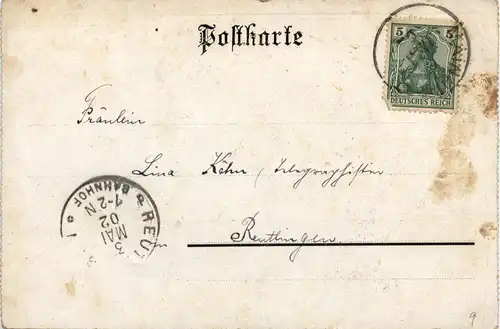 Postkarte
5 5
DEUTSCHES REICH
Fräulein
Lina Köhn, Telegraphistin
in
Reutlingen
REUT
BAHNHOF
1-2 N
02
MAI
3
9